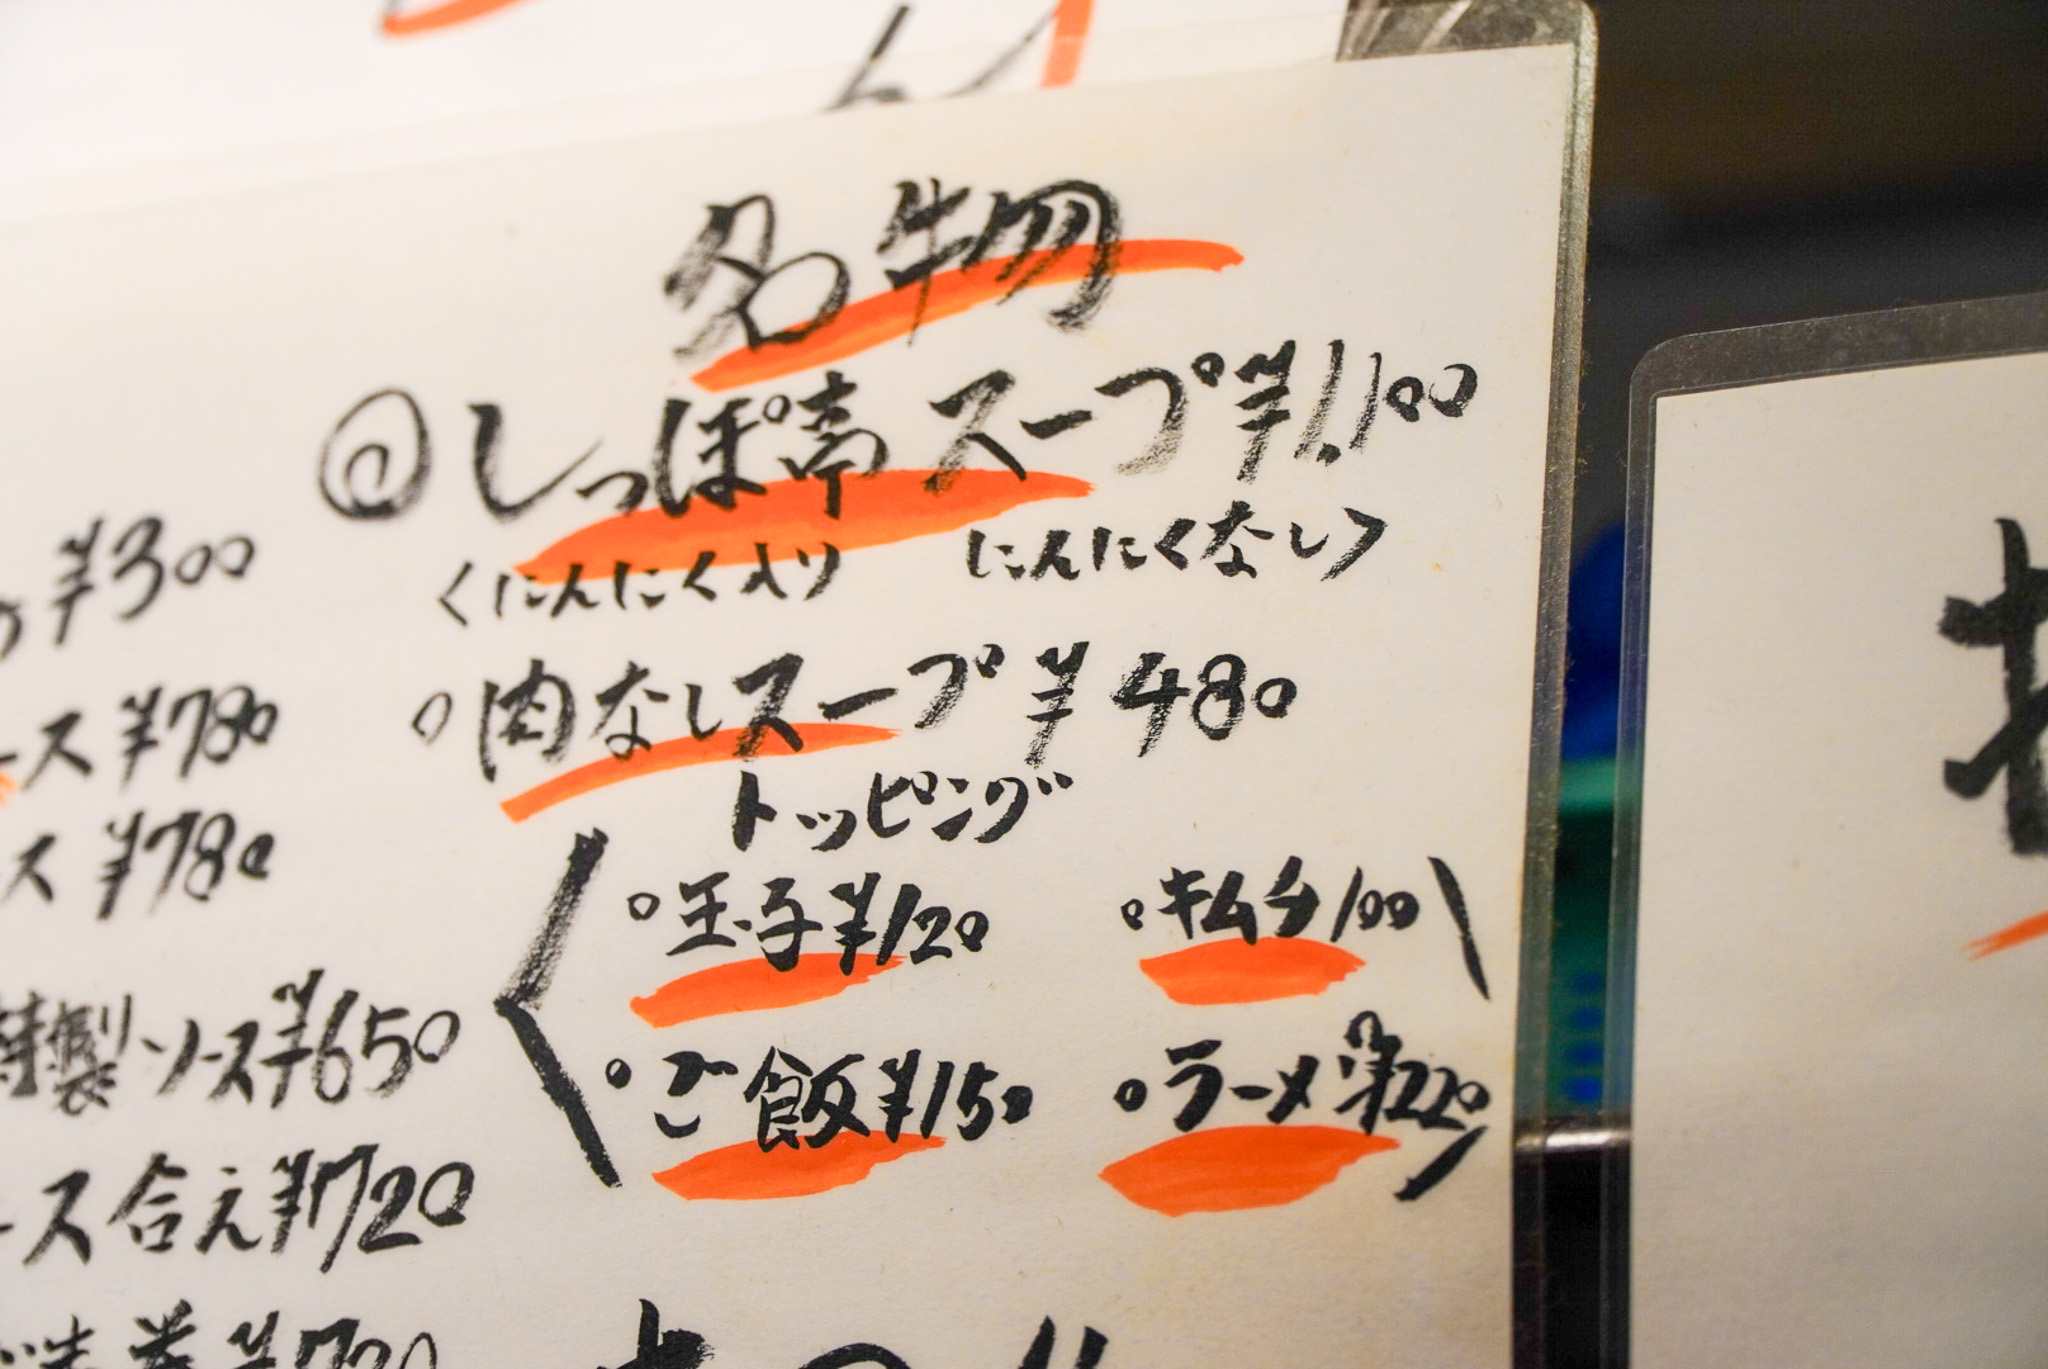 名物
しっぽ亭スープ¥1,100
<にんにく入り にんにくなし>
肉なしスープ¥480
トッピング
玉子¥120 キムチ100
ご飯¥150 ラーメン¥220
¥300
ース¥780
ス¥780
特製ソース¥650
ース合え¥720